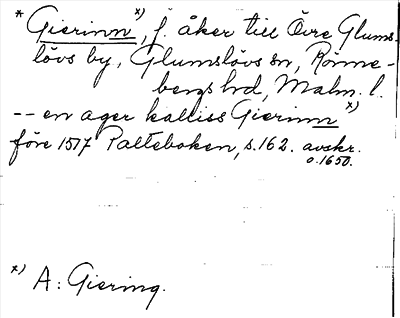 * Gierinn x), f. åker till Övre Glums-
lövs by, Glumslövs sn, Rönne-
bergs hd, Malm. l.
-- en ager kalliss Gierinn x)
före 1517 Palteboken, s. 162. avskr.
o. 1650.
x) A: Giering.